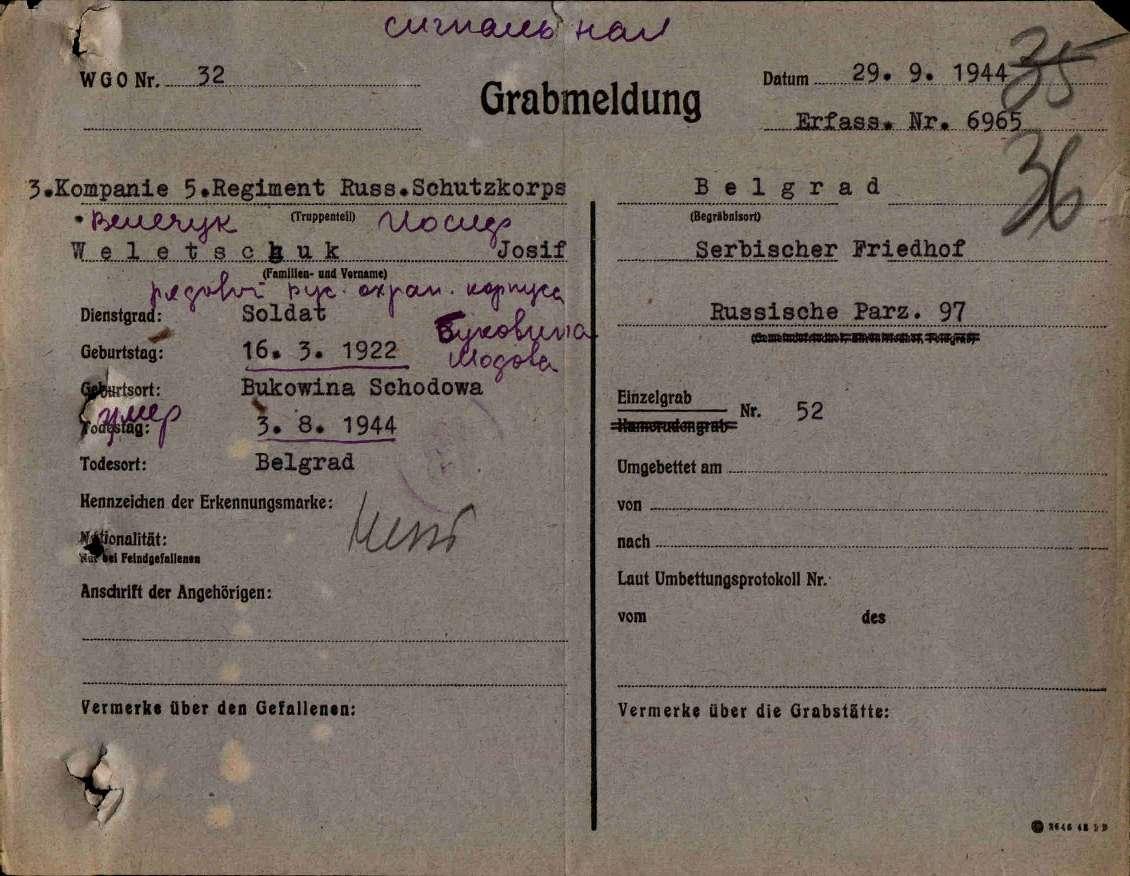 сигнальная
WGO Nr. 32
Grabmeldung
Datum 29. 9. 1944
35
Erfass. Nr. 6965
36
3.Kompanie 5.Regiment Russ.Schutzkorps
(Truppenteil)
Велечук Иосиф
Weletschuk Josif
(Familien- und Vorname)
рядовой рус. охран. корпуса
Dienstgrad: Soldat
Буковина
Geburtstag: 16. 3. 1922
Шодова
Geburtsort: Bukowina Schodowa
умер
Todestag: 3. 8. 1944
Todesort: Belgrad
Kennzeichen der Erkennungsmarke:
Nationalität:
Nur bei Feindgefallenen
Anschrift der Angehörigen:
Vermerke über den Gefallenen:
Belgrad
(Begräbnisort)
Serbischer Friedhof
Russische Parz. 97
(Gemeindefriedhof, Ehrenfriedhof, Feldgrab)
Einzelgrab
Kameradengrab
Nr. 52
Umgebettet am
von
nach
Laut Umbettungsprotokoll Nr.
vom des
Vermerke über die Grabstätte: